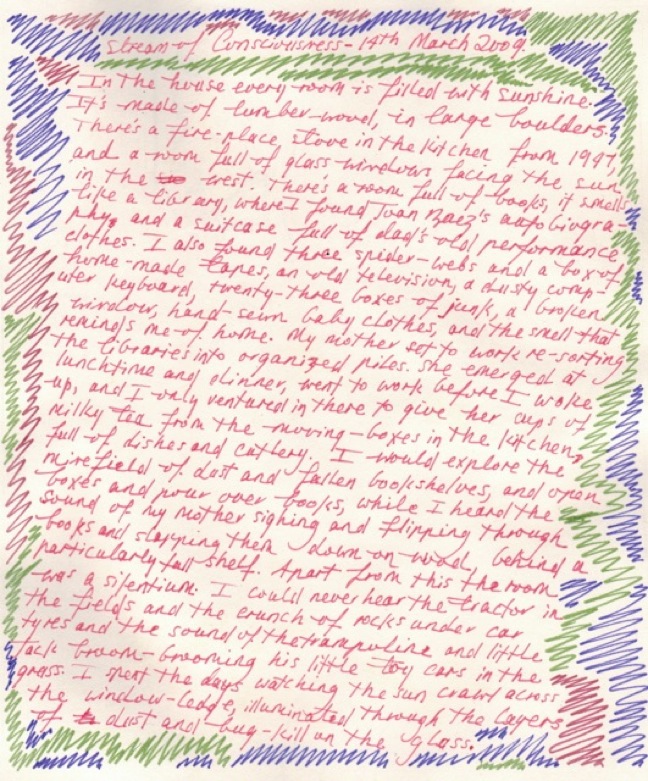 Stream of Consciousness - 14th March 2009.
In the house every room is filled with sunshine.
It's made of lumber-wood, in large boulders.
There's a fire-place, stove in the kitchen from 1947,
and a room full of glass-windows facing the sun
in the west. There's a room full of books, it smells
like a library, where I found Joan Baez's autobiogra-
phy, and a suitcase full of dad's old performance
clothes. I also found three spider-webs and a box of
home-made tapes, an old television, a dusty comp-
uter keyboard, twenty-three boxes of junk, a broken
window, hand-sewn baby clothes, and the smell that
reminds me of home. My mother set to work re-sorting
the libraries into organized piles. She emerged at
lunchtime and dinner, went to work before I woke
up, and I only ventured in there to give her cups of
milky tea from the moving-boxes in the kitchen,
full of dishes and cutlery. I would explore the
minefield of dust and fallen bookshelves, and open
boxes and pour over books, while I heard the
sound of my mother sighing and flipping through
books and slapping them down on wood, behind a
particularly full shelf. Apart from this the room
was a silentium. I could never hear the tractor in
the fields and the crunch of rocks under car
tyres and the sound of the trampoline and little
Jack broom-brooming his little toy cars in the
grass. I spent the days watching the sun crawl across
the window-ledge, illuminated through the layers
of dust and bug-kill on the glass.